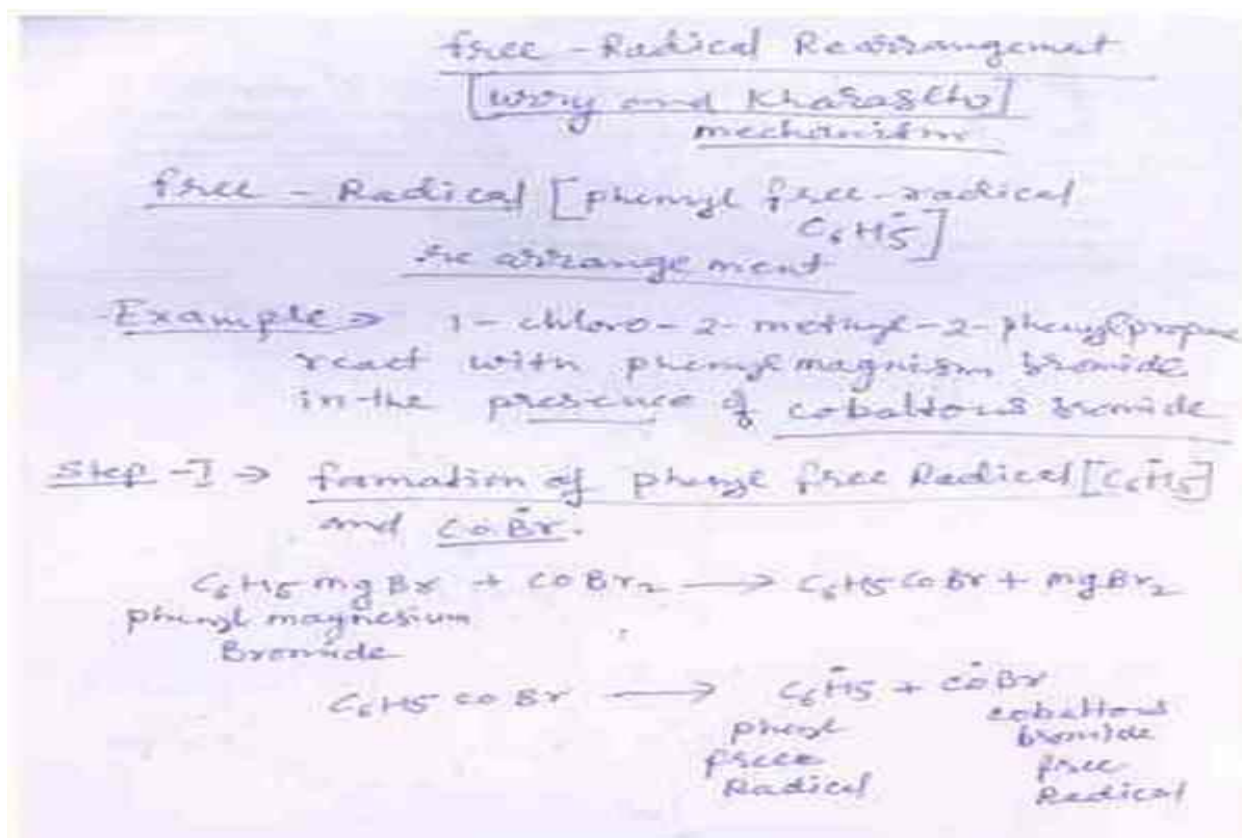 free - Radical Rearrangemet
[Urry and Kharasch]
mechanism
free - Radical [phenyl free-radical
C6H5]
re arrangement
Example → 1- chloro- 2- methyl-2- phenylpropane
react with phenyl magnism bromide
in-the presence of cobaltous bromide
Step -I → formation of phenyl free Radical [C6H5]
and CoBr.
C6H5 mg Br + COBr2 → C6H5 CO Br + mgBr2
phenyl magnesium
Bromide
C6H5 CO Br → C6H5 + COBr
phenyl cobaltous
free bromide
Radical free
Radical